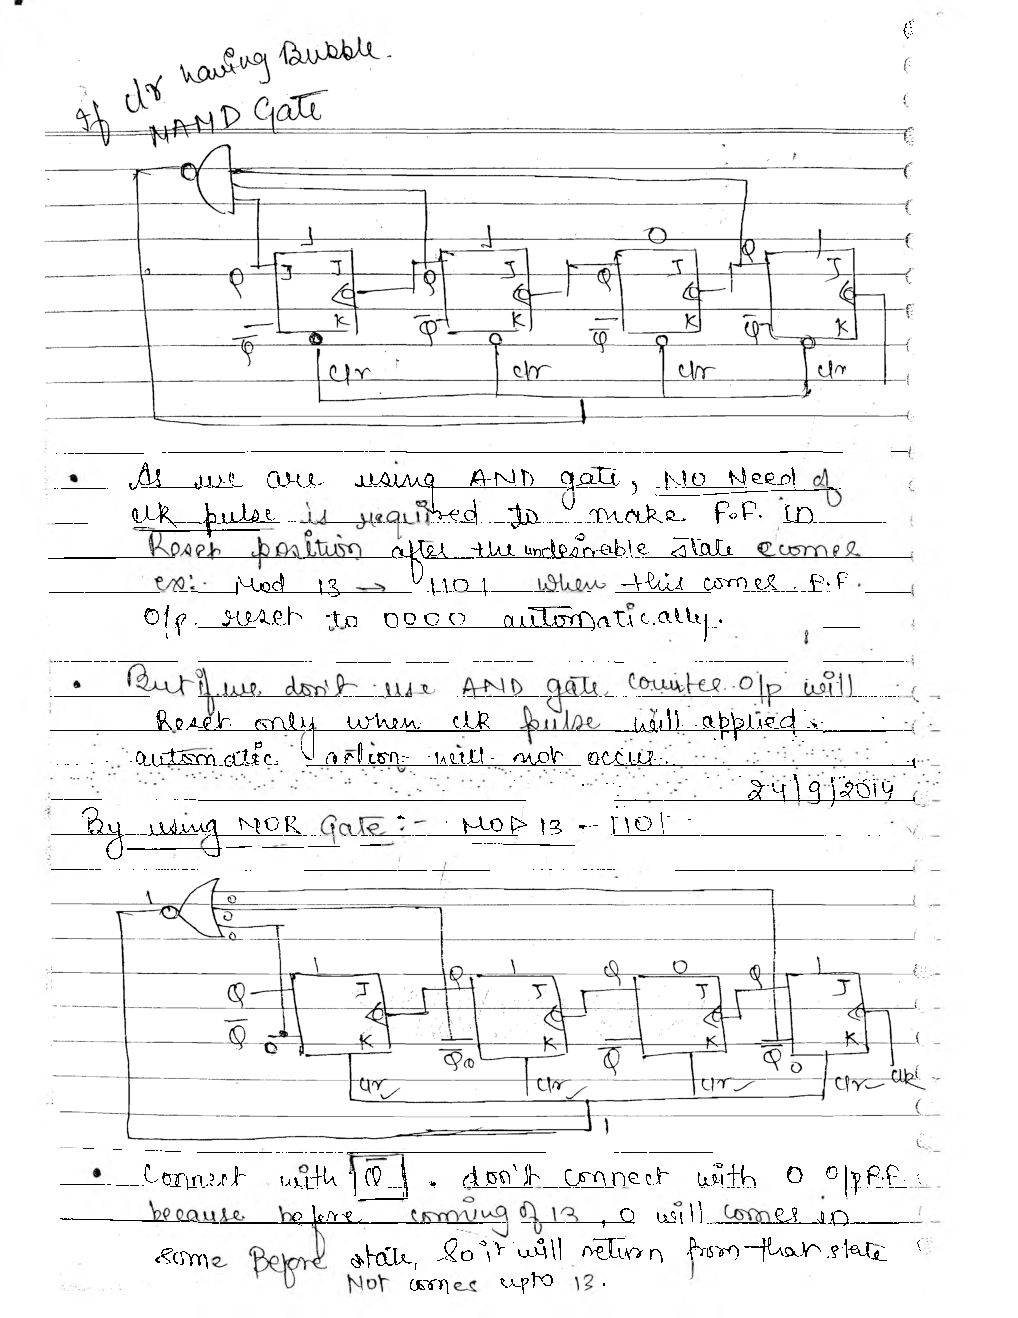 If clr having Bubble.
NAND Gate
1 1 0 1
Q J J Q J Q J Q J
Q̅ K Q̅ K Q̅ K Q̅ K
clr clr clr clr
1
• As we are using AND gate, NO Need of
clk pulse is required to make F.F. in
Reset position after the undesirable state comes
ex:- Mod 13 → 1101 when this comes F.F.
O/p. reset to 0000 automatically.
• But if we don't use AND gate counter o/p will
Reset only when clk pulse will applied.
automatic action will not occur.
24/9/2014
By using NOR Gate :- MOD 13 - 1101
1 0 0 0
1 1 0 1
Q J Q J Q J Q J
Q̅ 0 K Q̅ 0 K Q̅ K Q̅ 0 K
clr clr clr clr clk
1
• Connect with Q̅ . don't connect with 0 o/p F.F.
because before coming of 13, 0 will comes in
some Before state, So it will return from that state
Not comes upto 13.